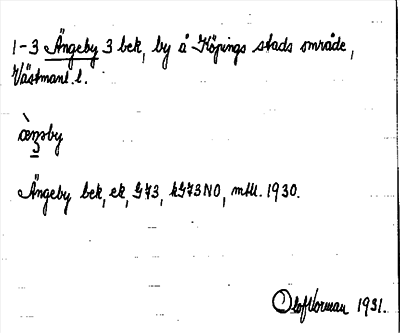 1-3 Ängeby 3 bek, by å Köpings stads område,
Västmanl. l.
Ängeby bek, ek, G73, kG73NO, mtl. 1930.
Olof Norman 1931.